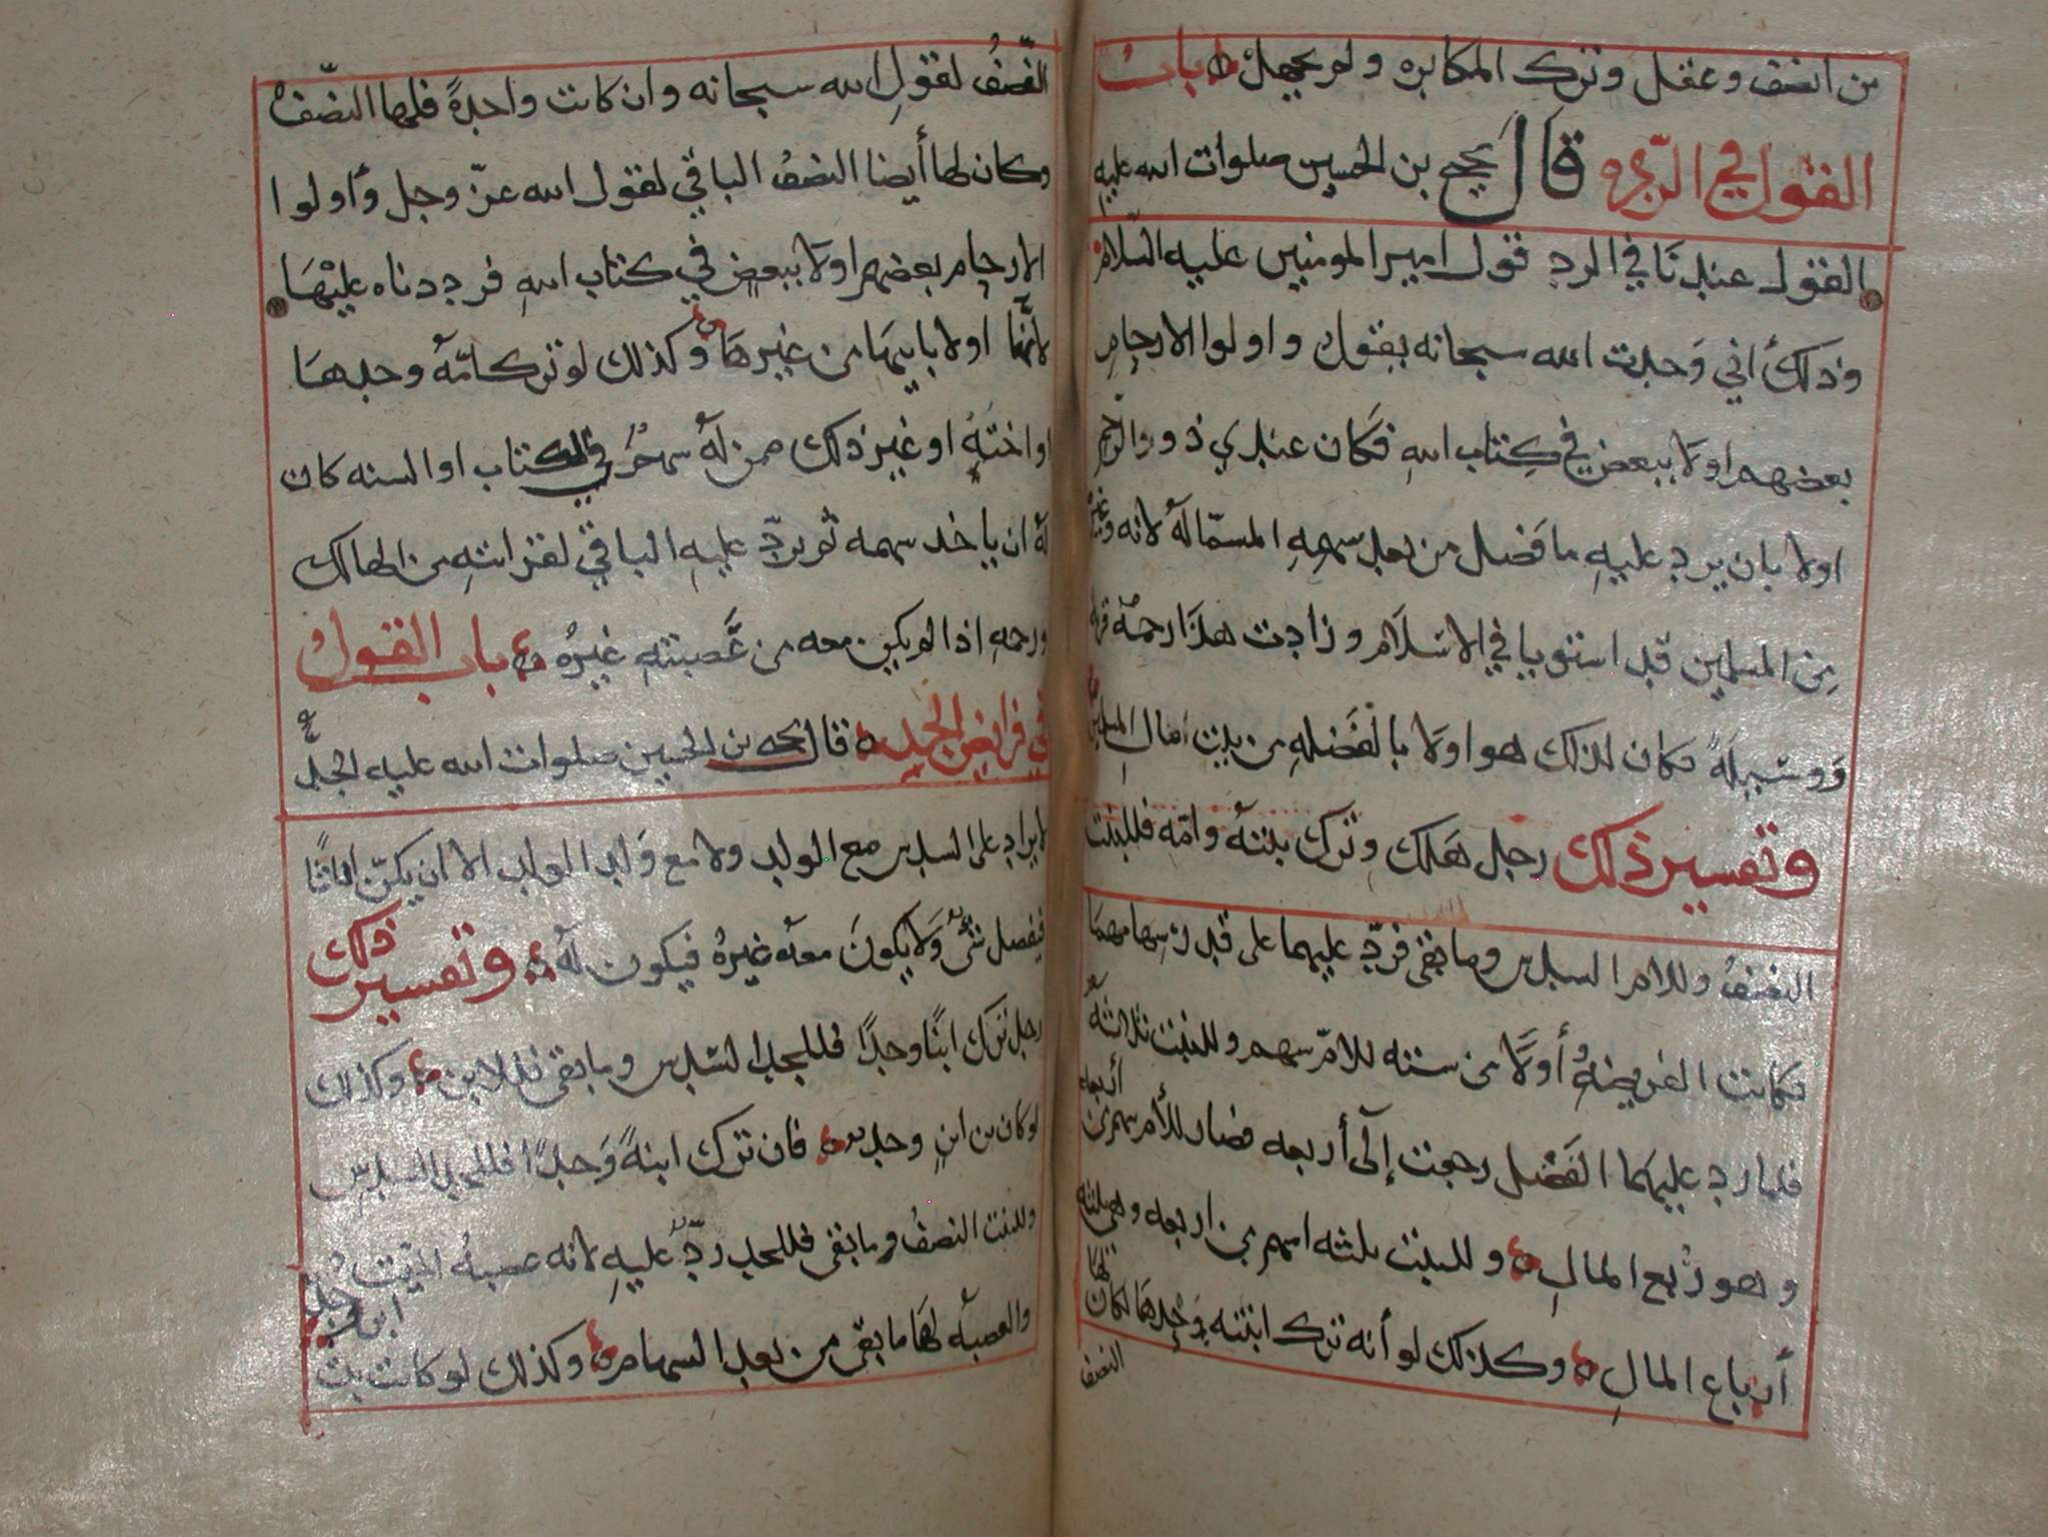 من انصف وعقل وترك المكابره ولم يجهل باب
القول في الرد قال يحيى بن الحسين صلوات الله عليه
القول عندنا في الرد قول امير المومنين عليه السلام
وذلك أني وجدت الله سبحانه يقول واولوا الارحام
بعضهم اولا ببعض في كتاب الله فكان عندي ذووا الرحم
اولا بان يرد عليه ما فضل من بعد سهمه المسمّا له لانه وغيره
من المسلمين قد استويا في الاسلام وزادت هذا رحمه قربه
ووشيجه فكان لذلك هو اولا بالفضله من بيت مال المسلمين
وتفسير ذلك رجل هلك وترك بنته وامه فللبنت
النصف وللام السدس وما بقي فردّ عليهما على قدر سهامهما
فكانت الفريضه أولا من سته للامّ سهم وللبنت ثلاثه
فلما رد عليهما الفضل رجعت إلى أربعه فصار للأم سهم من أربعه
وهو رُبع المال وللبنت ثلثه اسهم من اربعه وهي ثلثه
أرباع المال وكذلك لو أنه ترك ابنته وحدها لكان لها
النصف
النّصفُ لقول الله سبحانه وان كانت واحدةً فلها النصف
وكان لها أيضا النصفُ الباقي لقول الله عزّ وجل وأولوا
الارحام بعضهم اولا ببعض في كتاب الله فرددناه عليها
لأنها اولا بابيها من غيرها وكذلك لو ترك امّه وحدها
او اخته او غير ذلك ممن له سهمٌ في الكتاب او السنه كان
له ان ياخذ سهمه ثم يردّ عليه الباقي لقرابته من الهالك
ورحمه اذا لم يكن معه من عصبته غيره باب القول
في فرايض الجد قال يحيى بن الحسين صلوات الله عليه الجد
لا يزاد على السدس مع الولد ولا مع ولد الولد الا ان يكنّ اناثًا
فيفضل شيٌ ولا يكون معه غيره فيكون له وتفسير ذلك
رجل ترك ابنًا وجدًا فللجد السدس وما بقي فللابن وكذلك
لو كان بن ابنٍ وجد فان ترك ابنةً وجدًا فللجد السدس
وللبنت النصفُ وما بقي فللجد ردّ عليه لانه عصبه الميت
والعصبه لها ما بقي من بعد السهام وكذلك لو كانت بنت
ابن وجد